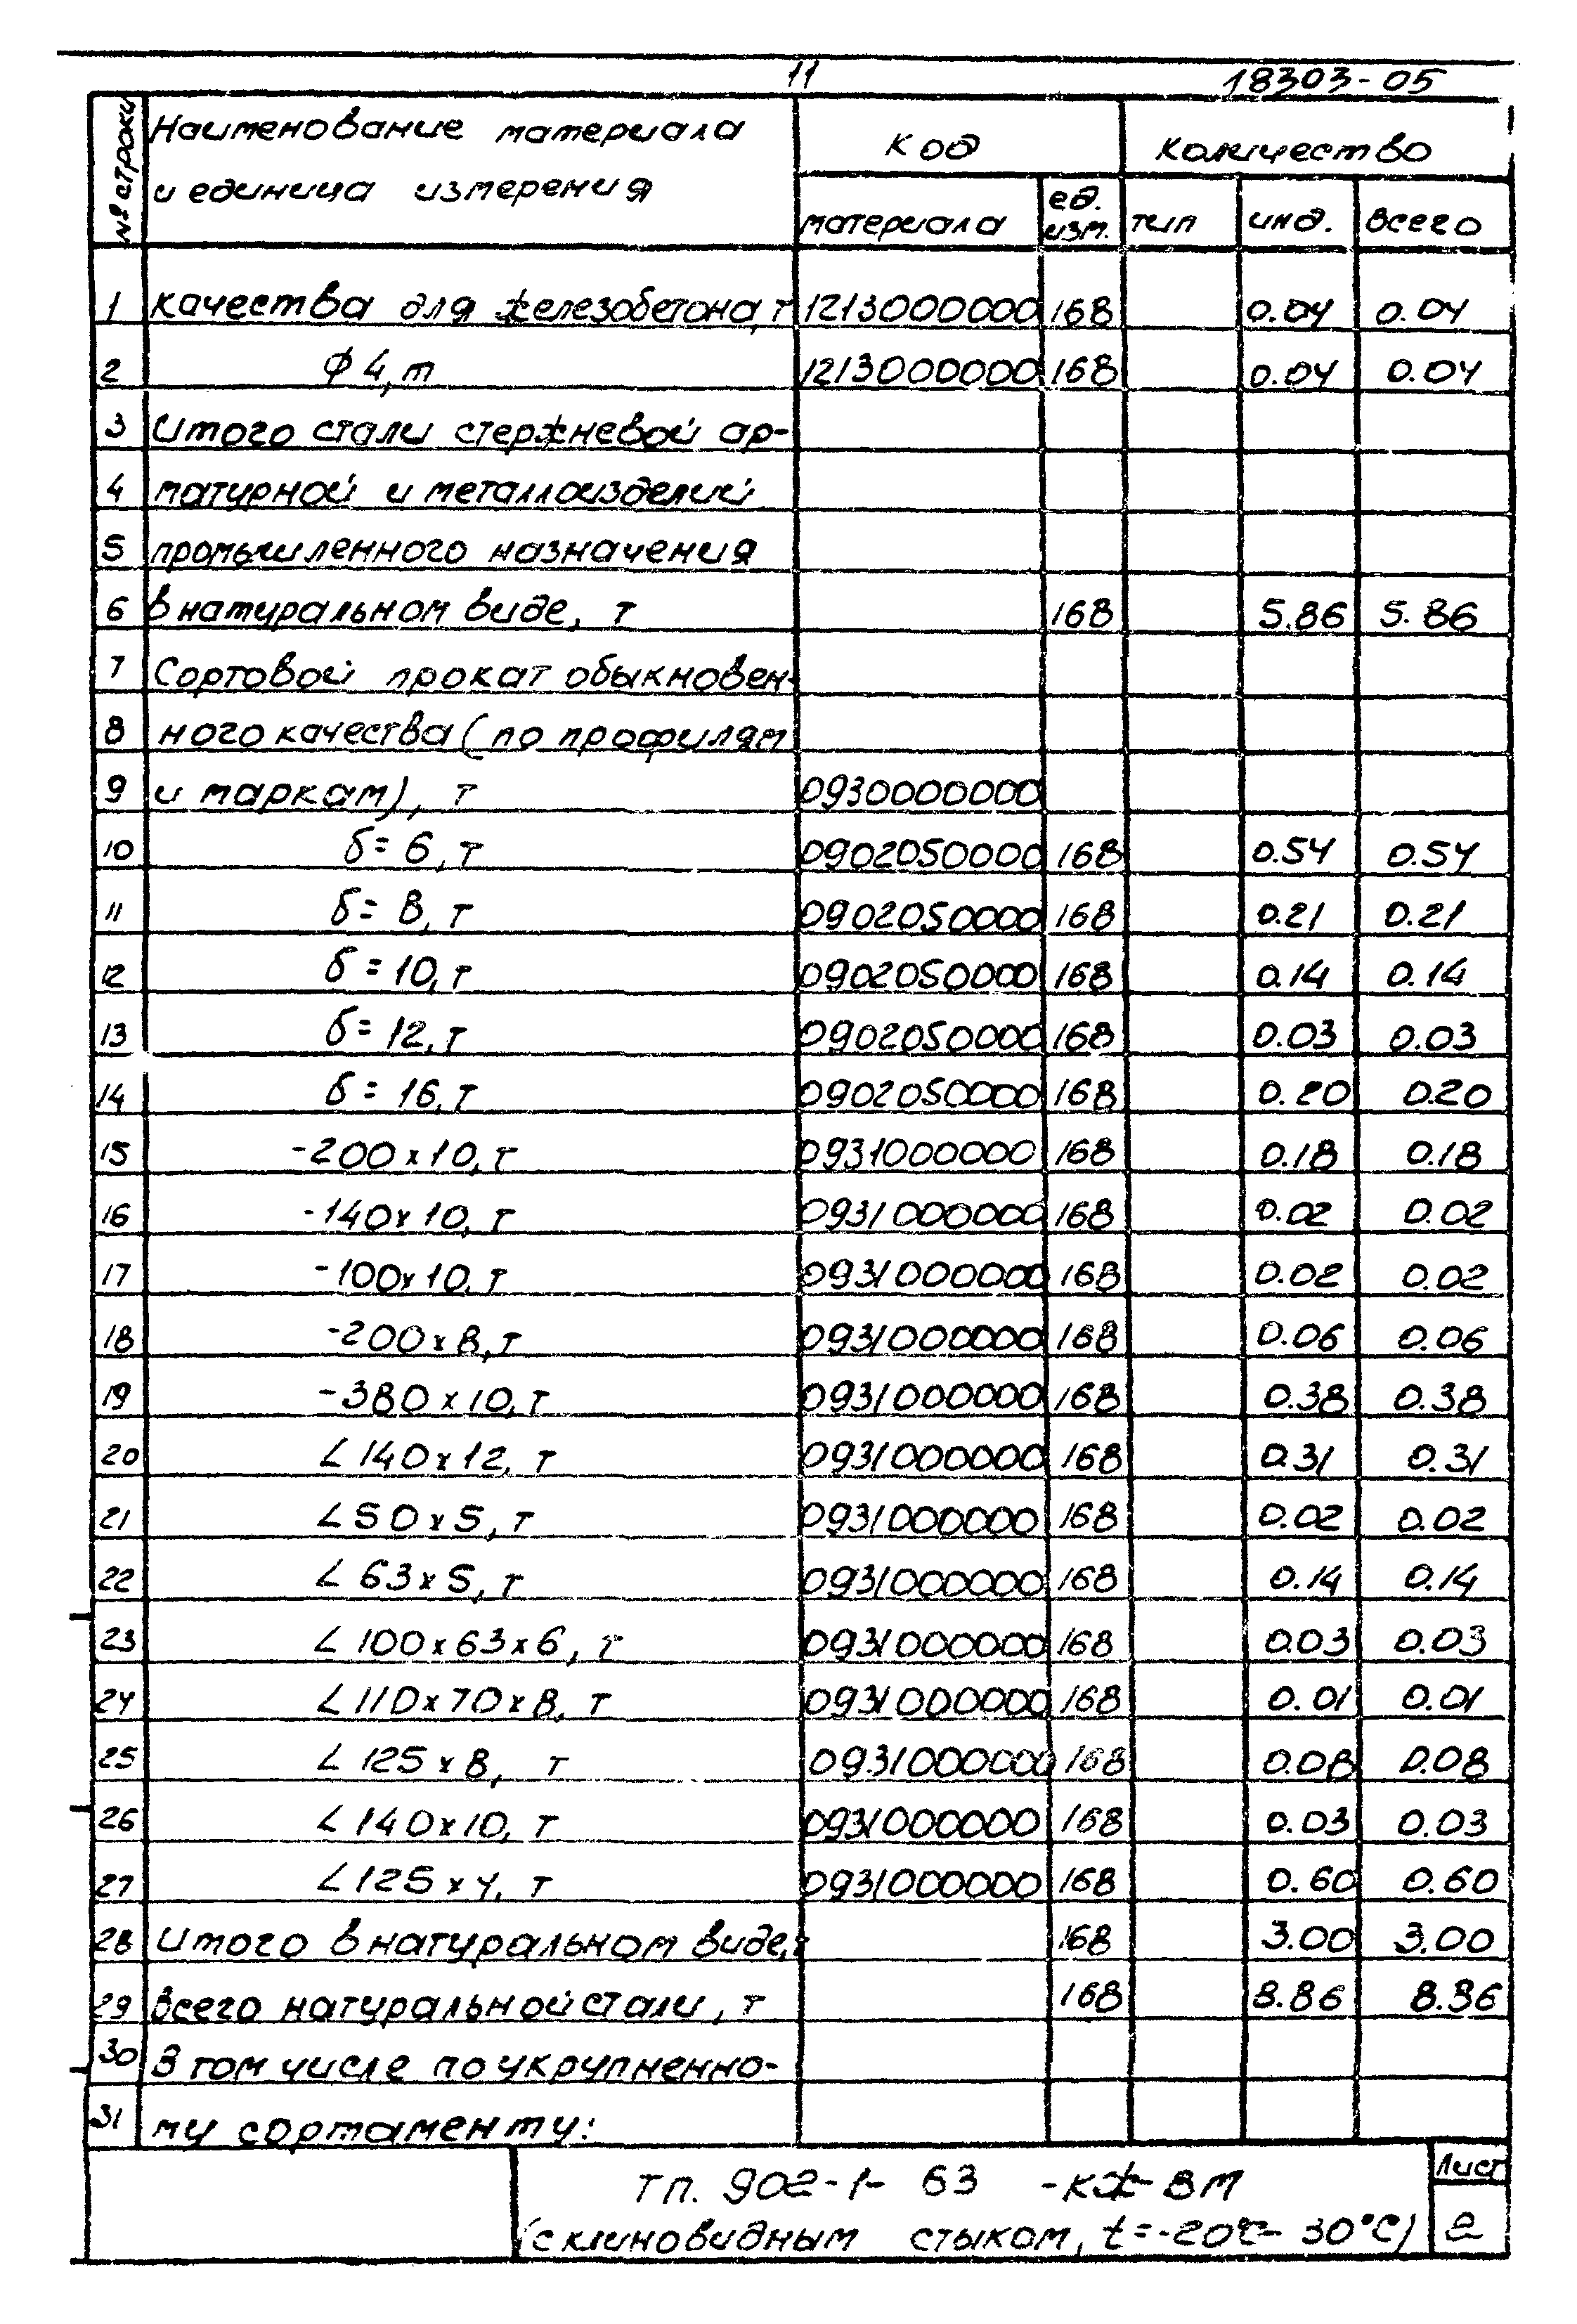 11
18303-05
№ строки
Наименование материала
и единица измерения
код
количество
материала
ед.
изм.
тип
инд.
всего
1 качества для железобетона, т 1213000000 168 0.04 0.04
2 Ф 4, т 1213000000 168 0.04 0.04
3 Итого стали стержневой ар-
4 матурной и металлоизделий
5 промышленного назначения
6 в натуральном виде, т 168 5.86 5.86
7 Сортовой прокат обыкновен-
8 ного качества (по профилям
9 и маркам), т 0930000000
10 δ= 6, т 0902050000 168 0.54 0.54
11 δ= 8, т 0902050000 168 0.21 0.21
12 δ= 10, т 0902050000 168 0.14 0.14
13 δ= 12, т 0902050000 168 0.03 0.03
14 δ= 16, т 0902050000 168 0.20 0.20
15 -200х10, т 0931000000 168 0.18 0.18
16 -140х10, т 0931000000 168 0.02 0.02
17 -100х10, т 0931000000 168 0.02 0.02
18 -200х8, т 0931000000 168 0.06 0.06
19 -380х10, т 0931000000 168 0.38 0.38
20 ∠140х12, т 0931000000 168 0.31 0.31
21 ∠50х5, т 0931000000 168 0.02 0.02
22 ∠63х5, т 0931000000 168 0.14 0.14
23 ∠100х63х6, т 0931000000 168 0.03 0.03
24 ∠110х70х8, т 0931000000 168 0.01 0.01
25 ∠125х8, т 0931000000 168 0.08 0.08
26 ∠140х10, т 0931000000 168 0.03 0.03
27 ∠125х4, т 0931000000 168 0.60 0.60
28 Итого в натуральном виде, т 168 3.00 3.00
29 всего натуральной стали, т 168 8.86 8.86
30 В том числе по укрупненно-
31 му сортаменту:
ТП. 902-1-63 -КЖ-ВМ
(с клиновидным стыком, t=-20℃-30°С)
Лист
2